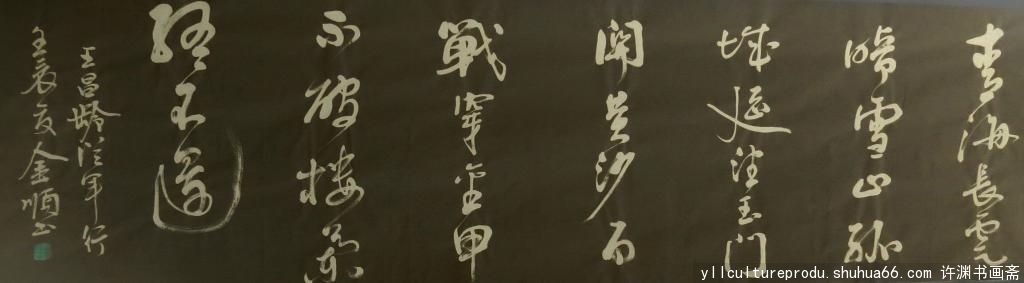 青海長雲
暗雪山孤
城遥望玉門
関黄沙百
戰穿金甲
不破楼蘭
終不還
王昌齡從軍行
壬辰夏金順书
yllcultureprodu.shuhua66.com 许渊书画斋